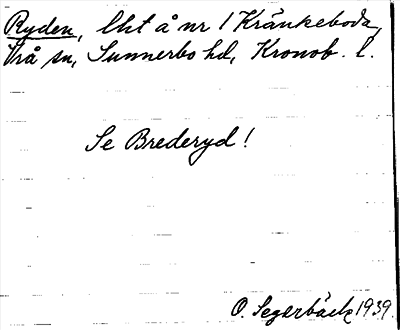 Ryden, lht å nr 1 Kränkeboda,
Vrå sn, Sunnerbo hd, Kronob. l.
Se Brederyd!
O. Segerbäck 1939.